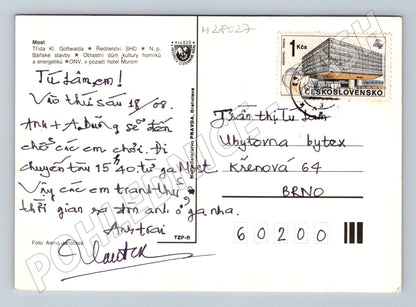 HZP027
Most
Třída Kl. Gottwalda ★ Ředitelství SHD ★ N. p.
Báňské stavby ★ Oblastní dům kultury horníků
a energetiků ★ ONV, v pozadí hotel Murom
Tú Lâm, em!
Vào thứ sáu 18/08.
Anh + A. Dũng sẽ đến
chỗ các em chơi. Đi
chuyến tàu 15h40 từ ga Most
Vậy các em tranh thủ
thời gian ra đón anh ở ga nha.
Anh trai
Foto Alena
TZP-R
Nakladatelství PRAVDA, Bratislava
1 Kčs
ČESKOSLOVENSKO
Trần thị Tú Lam
Ubytovna bytex
Křenová 64
BRNO
60200
POHLEDNICE